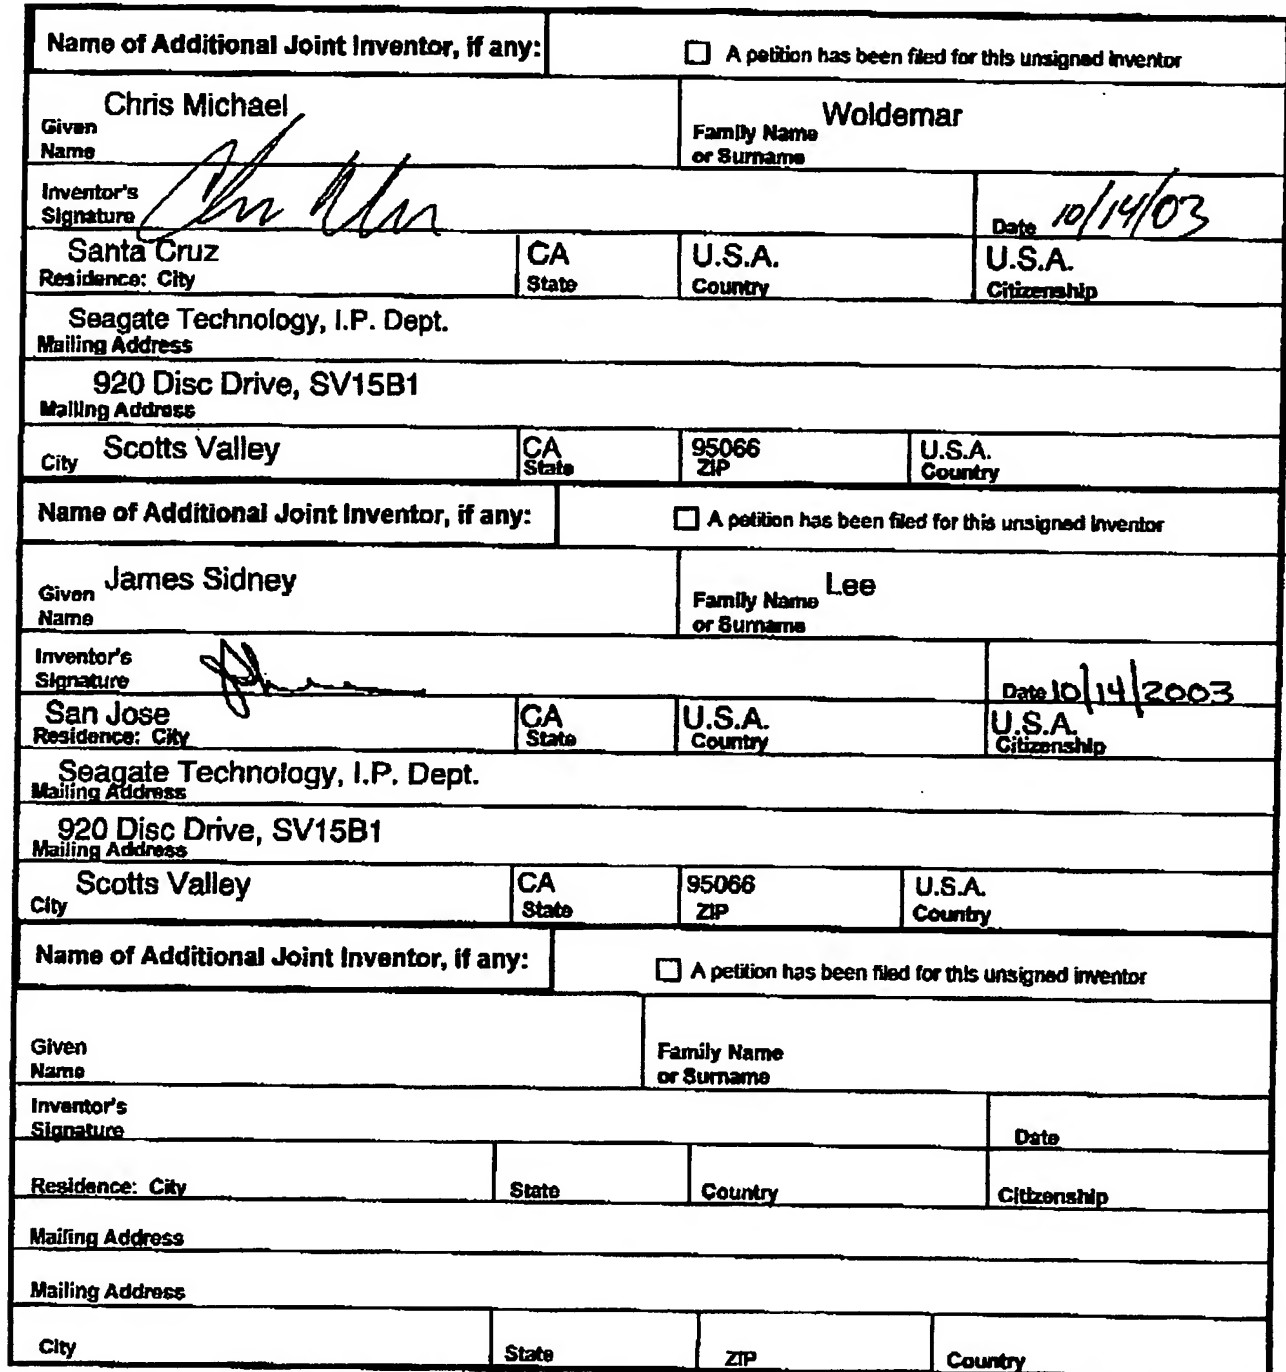 Name of Additional Joint Inventor, if any: ☐ A petition has been filed for this unsigned inventor
Chris Michael Woldemar
Given Name Family Name or Surname
Inventor's Signature Date 10/14/03
Santa Cruz CA U.S.A. U.S.A.
Residence: City State Country Citizenship
Seagate Technology, I.P. Dept.
Mailing Address
920 Disc Drive, SV15B1
Mailing Address
City Scotts Valley CA 95066 U.S.A.
State ZIP Country
Name of Additional Joint Inventor, if any: ☐ A petition has been filed for this unsigned inventor
Given Name James Sidney Family Name or Surname Lee
Inventor's Signature Date 10/14/2003
San Jose CA U.S.A. U.S.A.
Residence: City State Country Citizenship
Seagate Technology, I.P. Dept.
Mailing Address
920 Disc Drive, SV15B1
Mailing Address
Scotts Valley CA 95066 U.S.A.
City State ZIP Country
Name of Additional Joint Inventor, if any: ☐ A petition has been filed for this unsigned inventor
Given Name Family Name or Surname
Inventor's Signature Date
Residence: City State Country Citizenship
Mailing Address
Mailing Address
City State ZIP Country